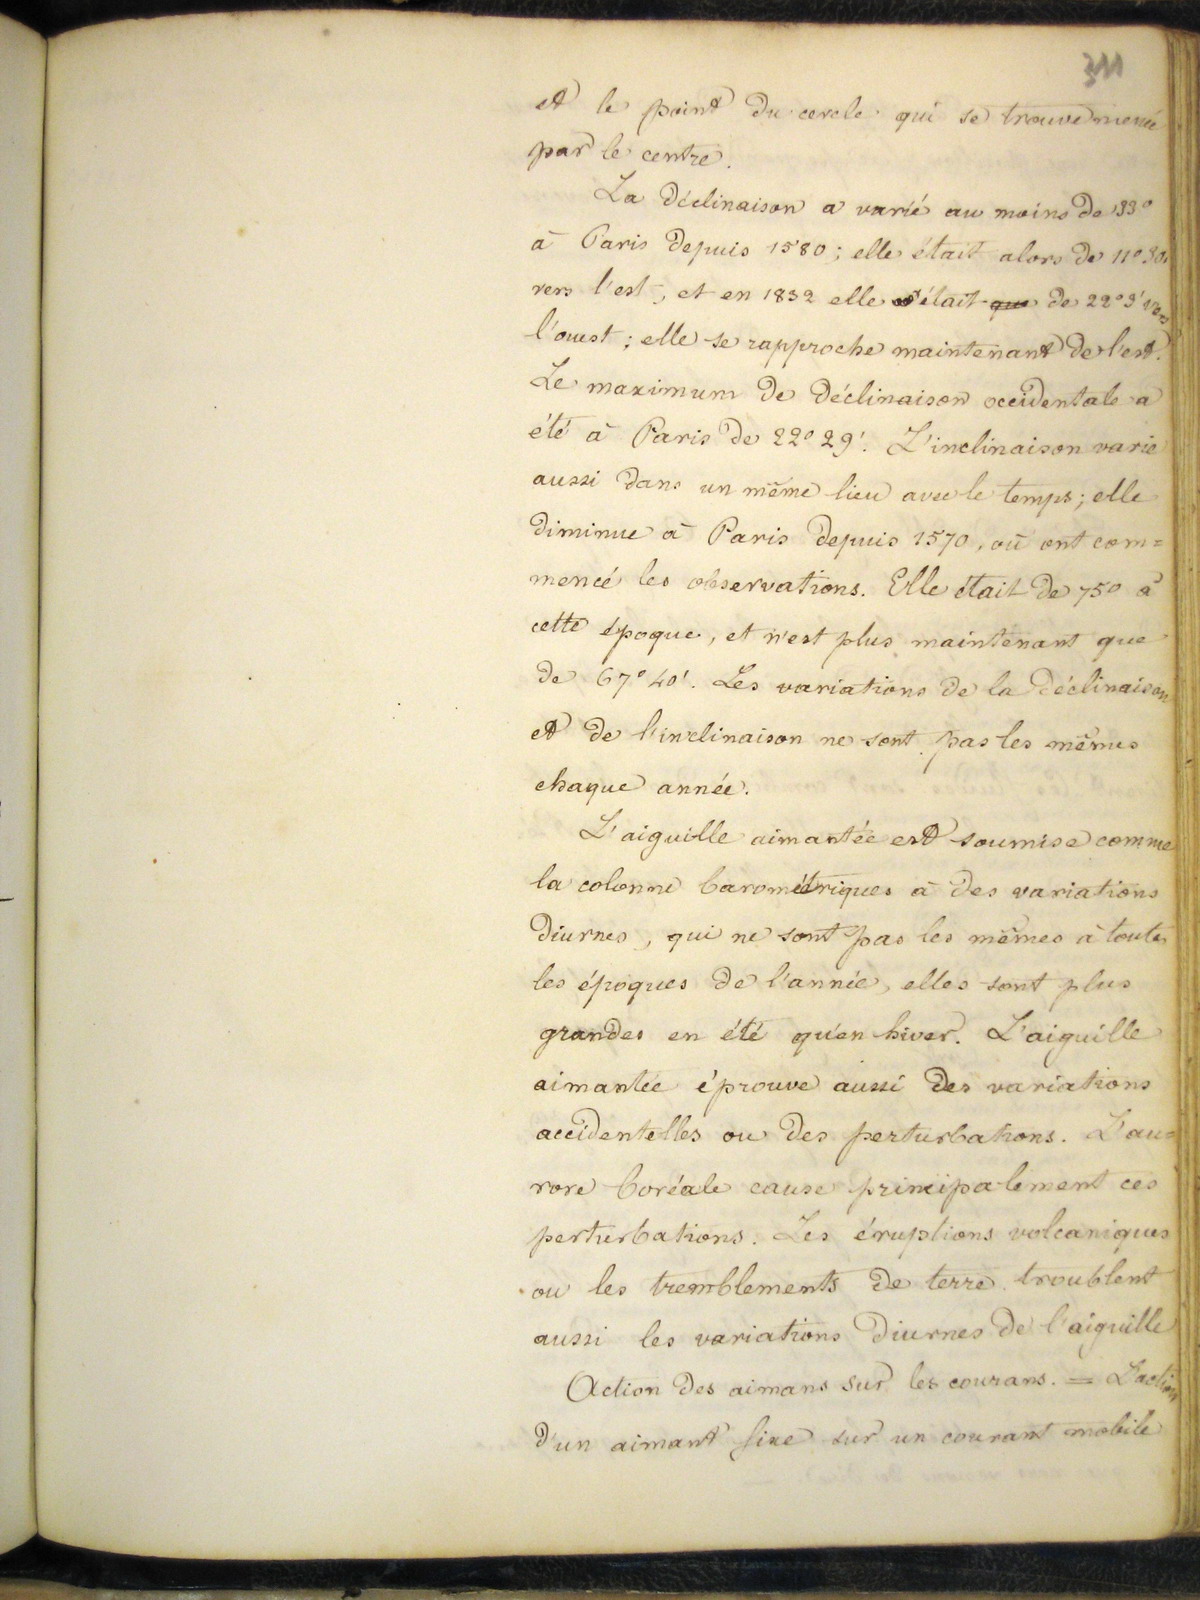 311
et le point du cercle qui se trouve mené
par le centre.
La déclinaison a varié au moins de 33°
à Paris depuis 1580; elle était alors de 11° 30'
vers l'est, et en 1832 elle était que de 22° 3' vers
l'ouest; elle se rapproche maintenant de l'est.
Le maximum de déclinaison occidentale a
été à Paris de 22° 29'. L'inclinaison varie
aussi dans un même lieu avec le temps; elle
diminue à Paris depuis 1570, où ont com=
mencé les observations. Elle était de 75° à
cette époque, et n'est plus maintenant que
de 67° 40'. Les variations de la déclinaison
et de l'inclinaison ne sont pas les mêmes
chaque année.
L'aiguille aimantée est soumise comme
la colonne barométriques à des variations
diurnes, qui ne sont pas les mêmes à toutes
les époques de l'année, elles sont plus
grandes en été qu'en hiver. L'aiguille
aimantée éprouve aussi des variations
accidentelles ou des perturbations. L'au=
rore boréale cause principalement ces
perturbations. Les éruptions volcaniques
ou les tremblements de terre troublent
aussi les variations diurnes de l'aiguille
Action des aimans sur les courans. = L'action
d'un aimant fixe sur un courant mobile